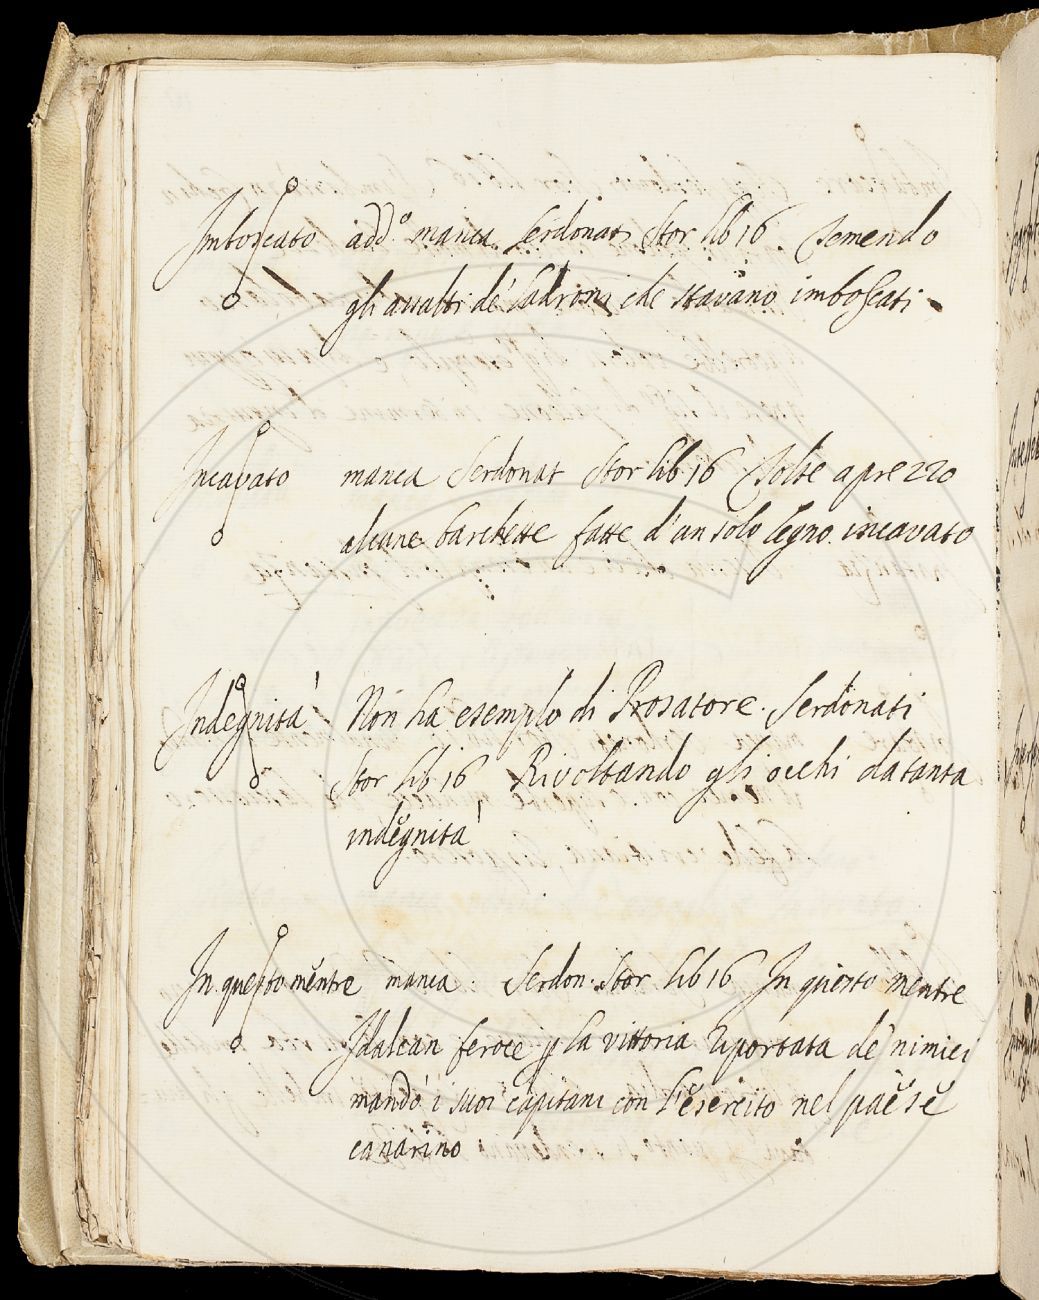 Imboscato add.º manca. Serdonat. Stor lib 16. Temendo
gli assalti de' ladroni che stavano imboscati.
Incavato manca Serdonat Stor lib 16 Tolte a prezzo
alcune barchette fatte d'un solo legno incavato
Indegnità Non ha esemplo di Prosatore. Serdonati
Stor lib 16 Rivoltando gli occhi da tanta
indegnità
In questo mentre manca. Serdon. Stor lib 16 In questo mentre
Idalcan feroce p la vittoria riportata de' nimici
mandò i suoi capitani con l'esercito nel paese
canarino